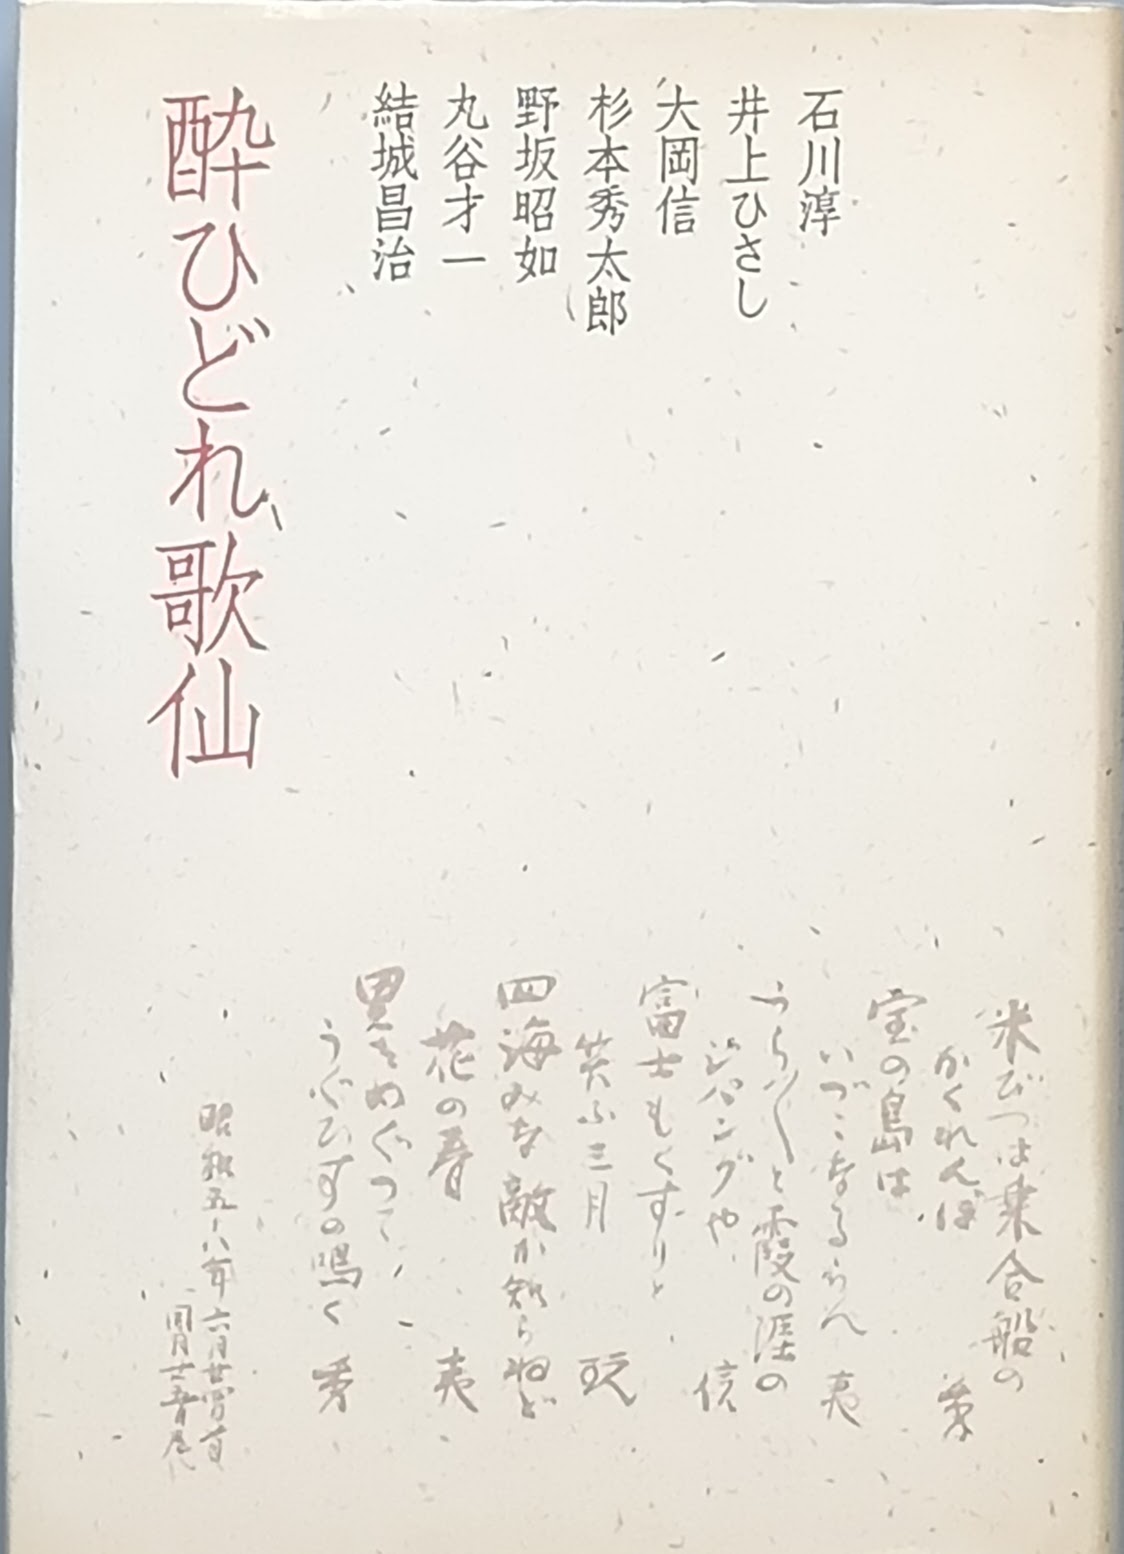 石川淳
井上ひさし
大岡信
杉本秀太郎
野坂昭如
丸谷才一
結城昌治
酔ひどれ歌仙
米びつは乗合船の
かくれんぼ
宝の島は
いづこなるらん 夷
うら〳〵と霞の涯の
ジパングや 信
富士もくすりと
笑ふ三月 玩
四海みな敵か知らねど
花の春 夷
墨をめぐって
うぐひすの鳴く
昭和五十八年六月廿四日首
同月廿五日尾